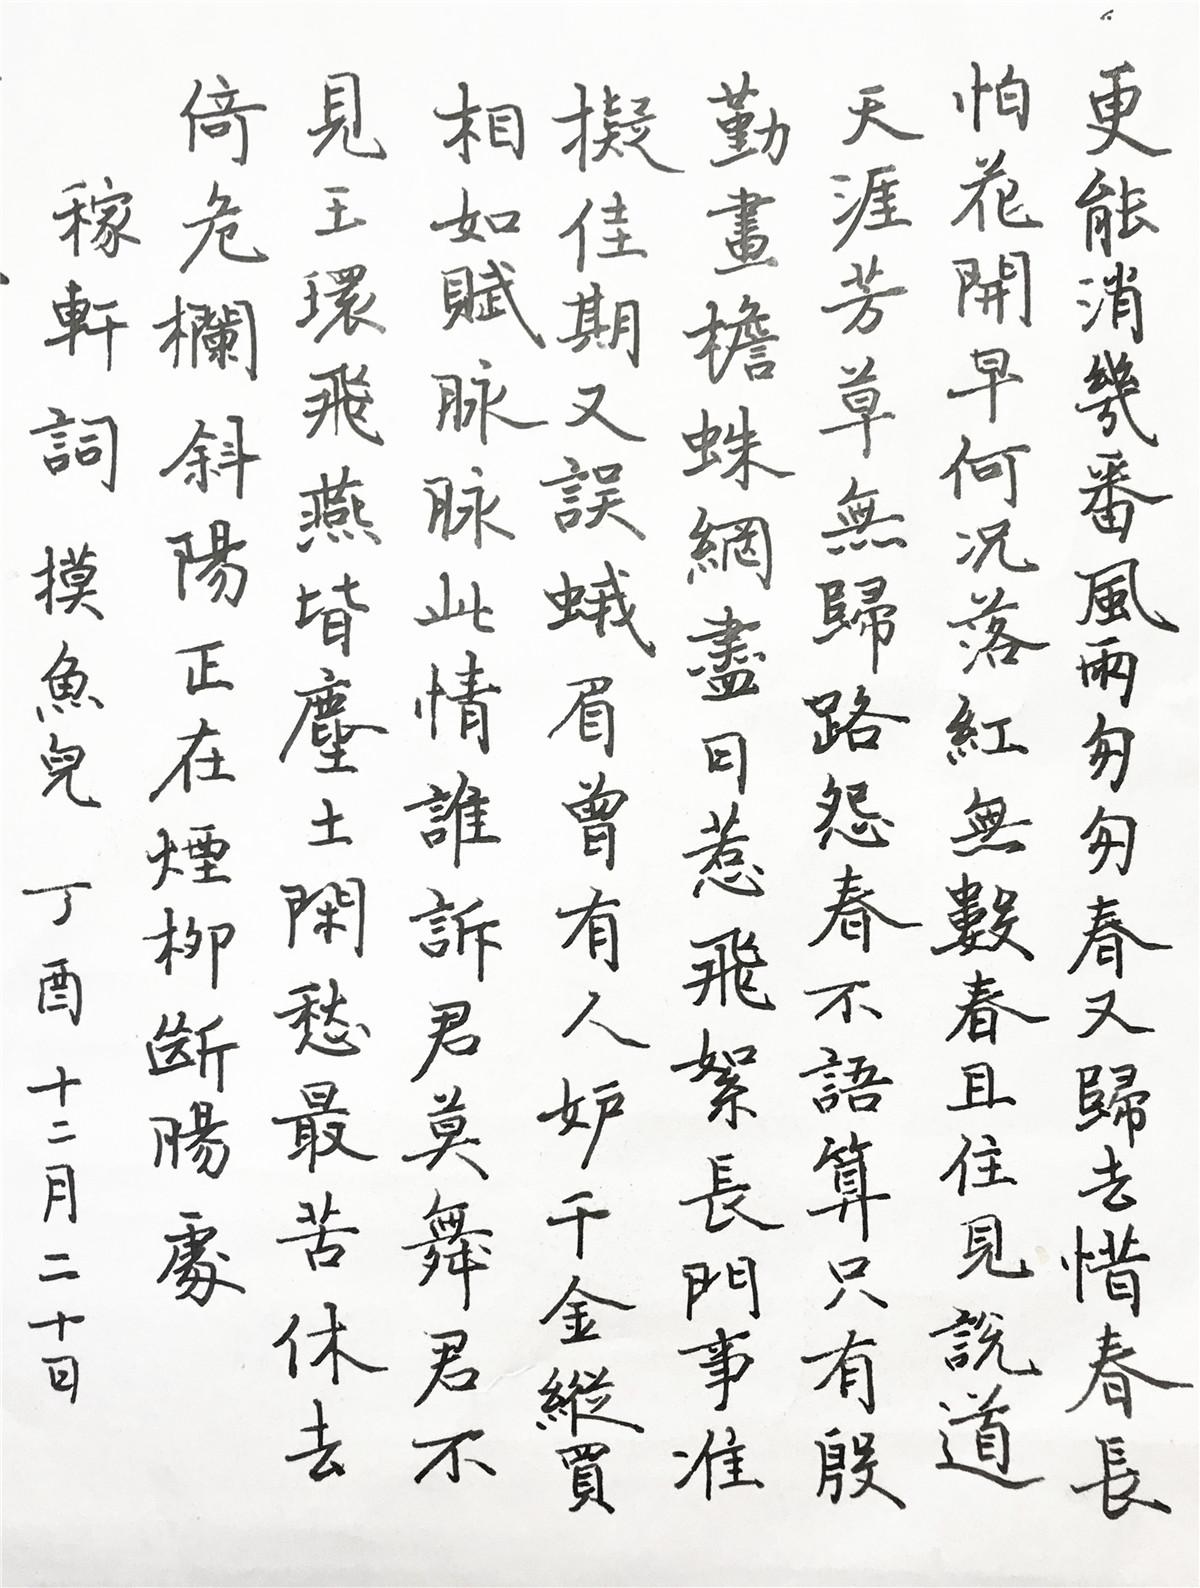 更能消幾番風雨匆匆春又歸去惜春長
怕花開早何況落紅無數春且住見說道
天涯芳草無歸路怨春不語算只有殷
勤畫檐蛛網盡日惹飛絮長門事准
擬佳期又誤蛾眉曾有人妒千金縱買
相如賦脉脉此情誰訴君莫舞君不
見玉環飛燕皆塵土閑愁最苦休去
倚危欄斜陽正在煙柳斷腸處
稼軒詞 摸魚兒 丁酉十二月二十日